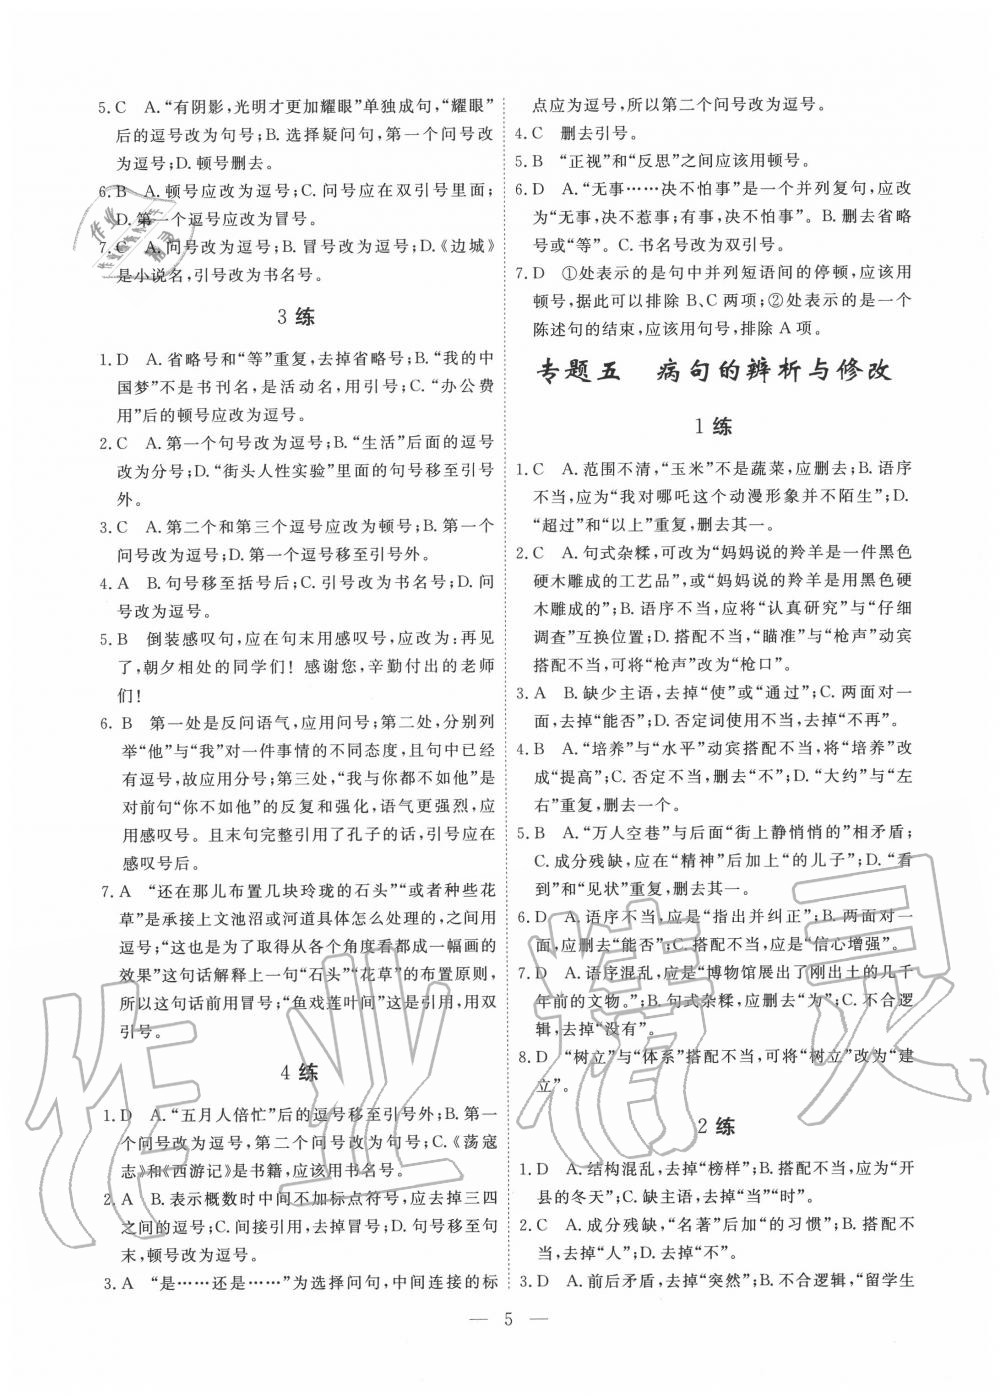 5. C　A.“有阴影,光明才更加耀眼”单独成句,“耀眼”
后的逗号改为句号;B. 选择疑问句,第一个问号改
为逗号;D. 顿号删去。
6. B　A. 顿号应改为逗号;C. 问号应在双引号里面;
D. 第一个逗号应改为冒号。
7. C　A. 问号改为逗号;B. 冒号改为逗号;D.《边城》
是小说名,引号改为书名号。
3 练
1. D　A. 省略号和“等”重复,去掉省略号;B.“我的中
国梦”不是书刊名,是活动名,用引号;C.“办公费
用”后的顿号应改为逗号。
2. C　A. 第一个句号改为逗号;B.“生活”后面的逗号
改为分号;D.“街头人性实验”里面的句号移至引号
外。
3. C　A. 第二个和第三个逗号应改为顿号;B. 第一个
问号改为逗号;D. 第一个逗号移至引号外。
4. A　B. 句号移至括号后;C. 引号改为书名号;D. 问
号改为逗号。
5. B　倒装感叹句,应在句末用感叹号,应改为:再见
了,朝夕相处的同学们！感谢您,辛勤付出的老师
们！
6. B　第一处是反问语气,应用问号;第二处,分别列
举“他”与“我”对一件事情的不同态度,且句中已经
有逗号,故应用分号;第三处,“我与你都不如他”是
对前句“你不如他”的反复和强化,语气更强烈,应
用感叹号。且末句完整引用了孔子的话,引号应在
感叹号后。
7. A　“还在那儿布置几块玲珑的石头”“或者种些花
草”是承接上文池沼或河道具体怎么处理的,之间用
逗号;“这也是为了从各个角度看都成一幅画的
效果”这句话解释上一句“石头”“花草”的布置原则,
所以这句话前用冒号;“鱼戏莲叶间”这是引用,用双
引号。
4 练
1. D　A.“五月人倍忙”后的逗号移至引号外;B. 第一
个问号改为逗号,第二个问号改为句号;C.《荡寇
志》和《西游记》是书籍,应该用书名号。
2. A　B. 表示概数时中间不加标点符号,应去掉三四
之间的逗号;C. 间接引用,去掉冒号;D. 句号移至句
末,顿号改为逗号。
3. A　“是……还是……”为选择问句,中间连接的标
点应为逗号,所以第二个问号改为逗号。
4. C　删去引号。
5. B　“正视”和“反思”之间应该用顿号。
6. D　A.“无事……决不怕事”是一个并列复句,应改
为“无事,决不惹事;有事,决不怕事”。B. 删去省略
号或“等”。C. 书名号改为双引号。
7. D　①处表示的是句中并列短语间的停顿,应该用
顿号,据此可以排除 B、C 两项;②处表示的是一个
陈述句的结束,应该用句号,排除 A 项。
专题五　病句的辨析与修改
1 练
1. C　A. 范围不清,“玉米”不是蔬菜,应删去;B. 语序
不当,应为“我对哪吒这个动漫形象并不陌生”;D.
“超过”和“以上”重复,删去其一。
2. C　A. 句式杂糅,可改为“妈妈说的羚羊是一件黑色
硬木雕成的工艺品”或“妈妈说的羚羊是用黑色硬
木雕成的”;B. 语序不当,应将“认真研究”与“仔细
调查”互换位置;D. 搭配不当,“瞄准”与“枪声”动宾
搭配不当,可将“枪声”改为“枪口”。
3. A　B. 缺少主语,去掉“使”或“通过”;C. 两面对一
面,去掉“能否”;D. 否定词使用不当,去掉“不再”。
4. B　A.“培养”与“水平”动宾搭配不当,将“培养”改
成“提高”;C. 否定不当,删去“不”;D.“大约”与“左
右”重复,删去一个。
5. B　A.“万人空巷”与后面“街上静悄悄的”相矛盾;
C. 成分残缺,应在“精神”后加上“的儿子”;D.“看
到”和“见状”重复,删去其一。
6. D　A. 语序不当,应是“指出并纠正”;B. 两面对一
面,应删去“能否”;C. 搭配不当,应是“信心增强”。
7. D　A. 语序混乱,应是“博物馆展出了刚出土的几千
年前的文物。”;B. 句式杂糅,应删去“为”;C. 不合逻
辑,去掉“没有”。
8. D　“树立”与“体系”搭配不当,可将“树立”改为“建
立”。
2 练
1. D　A. 结构混乱,去掉“榜样”;B. 搭配不当,应为“开
县的冬天”;C. 缺主语,去掉“当”“时”。
2. C　A. 成分残缺,“名著”后加“的习惯”;B. 搭配不
当,去掉“人”;D. 去掉“不”。
3. D　A. 前后矛盾,去掉“突然”;B. 不合逻辑,“留学生
— 5 —
作业精灵